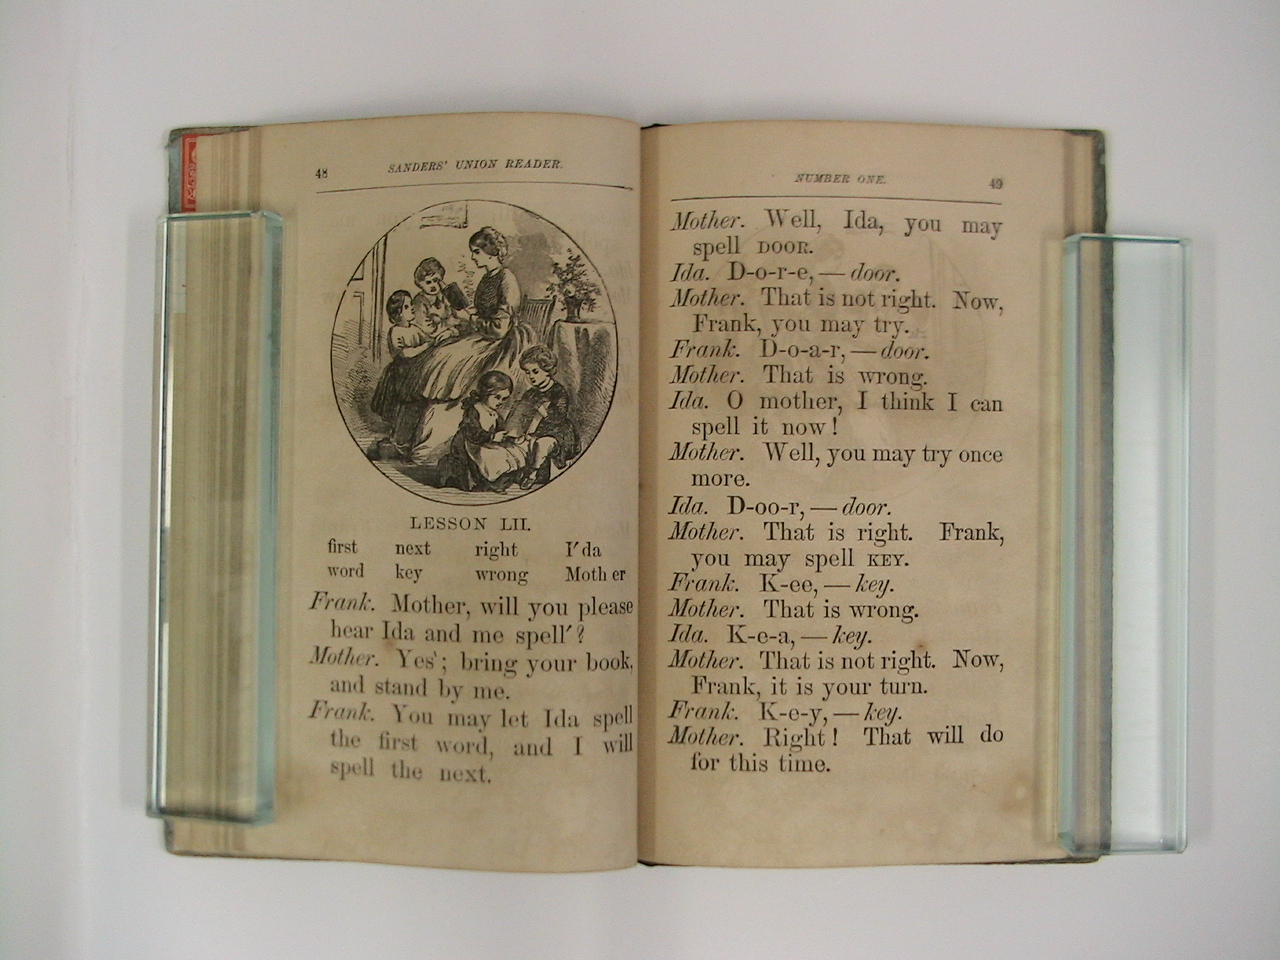 48
SANDERS' UNION READER.
LESSON LII.
first next right I'da
word key wrong Moth er
Frank. Mother, will you please
hear Ida and me spell'?
Mother. Yes'; bring your book,
and stand by me.
Frank. You may let Ida spell
the first word, and I will
spell the next.
NUMBER ONE.
49
Mother. Well, Ida, you may
spell DOOR.
Ida. D-o-r-e, — door.
Mother. That is not right. Now,
Frank, you may try.
Frank. D-o-a-r, — door.
Mother. That is wrong.
Ida. O mother, I think I can
spell it now!
Mother. Well, you may try once
more.
Ida. D-oo-r, — door.
Mother. That is right. Frank,
you may spell KEY.
Frank. K-ee, — key.
Mother. That is wrong.
Ida. K-e-a, — key.
Mother. That is not right. Now,
Frank, it is your turn.
Frank. K-e-y, — key.
Mother. Right! That will do
for this time.